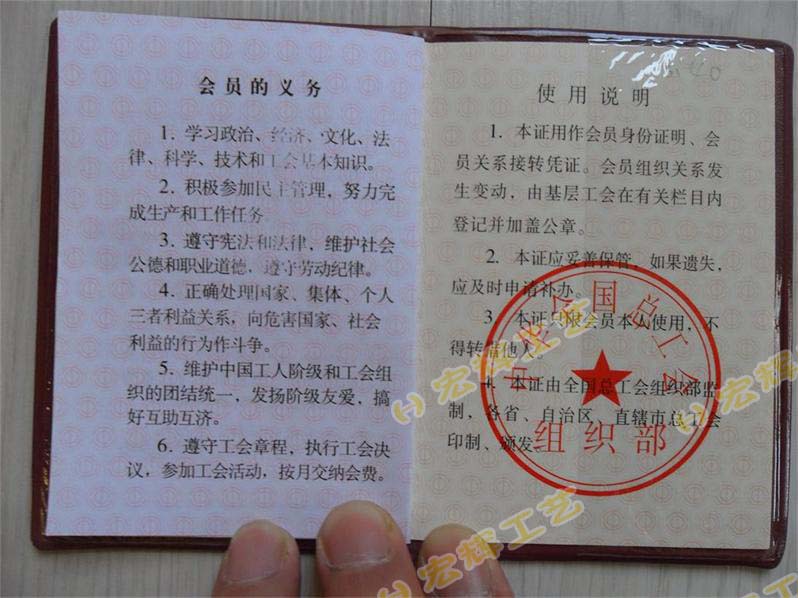 会员的义务
1．学习政治、经济、文化、法
律、科学、技术和工会基本知识。
2．积极参加民主管理，努力完
成生产和工作任务
3．遵守宪法和法律，维护社会
公德和职业道德，遵守劳动纪律。
4．正确处理国家、集体、个人
三者利益关系，向危害国家、社会
利益的行为作斗争。
5．维护中国工人阶级和工会组
织的团结统一，发扬阶级友爱，搞
好互助互济。
6．遵守工会章程，执行工会决
议，参加工会活动，按月交纳会费。
使用说明
1．本证用作会员身份证明、会
员关系接转凭证。会员组织关系发
生变动，由基层工会在有关栏目内
登记并加盖公章。
2．本证应妥善保管，如果遗失，
应及时申请补办。
3．本证只限会员本人使用，不
得转借他人。
4．本证由全国总工会组织部监
制，各省、自治区、直辖市总工会
印制、颁发。
中华全国总工会
组织部
宏辉工艺
宏辉工艺
宏辉工艺